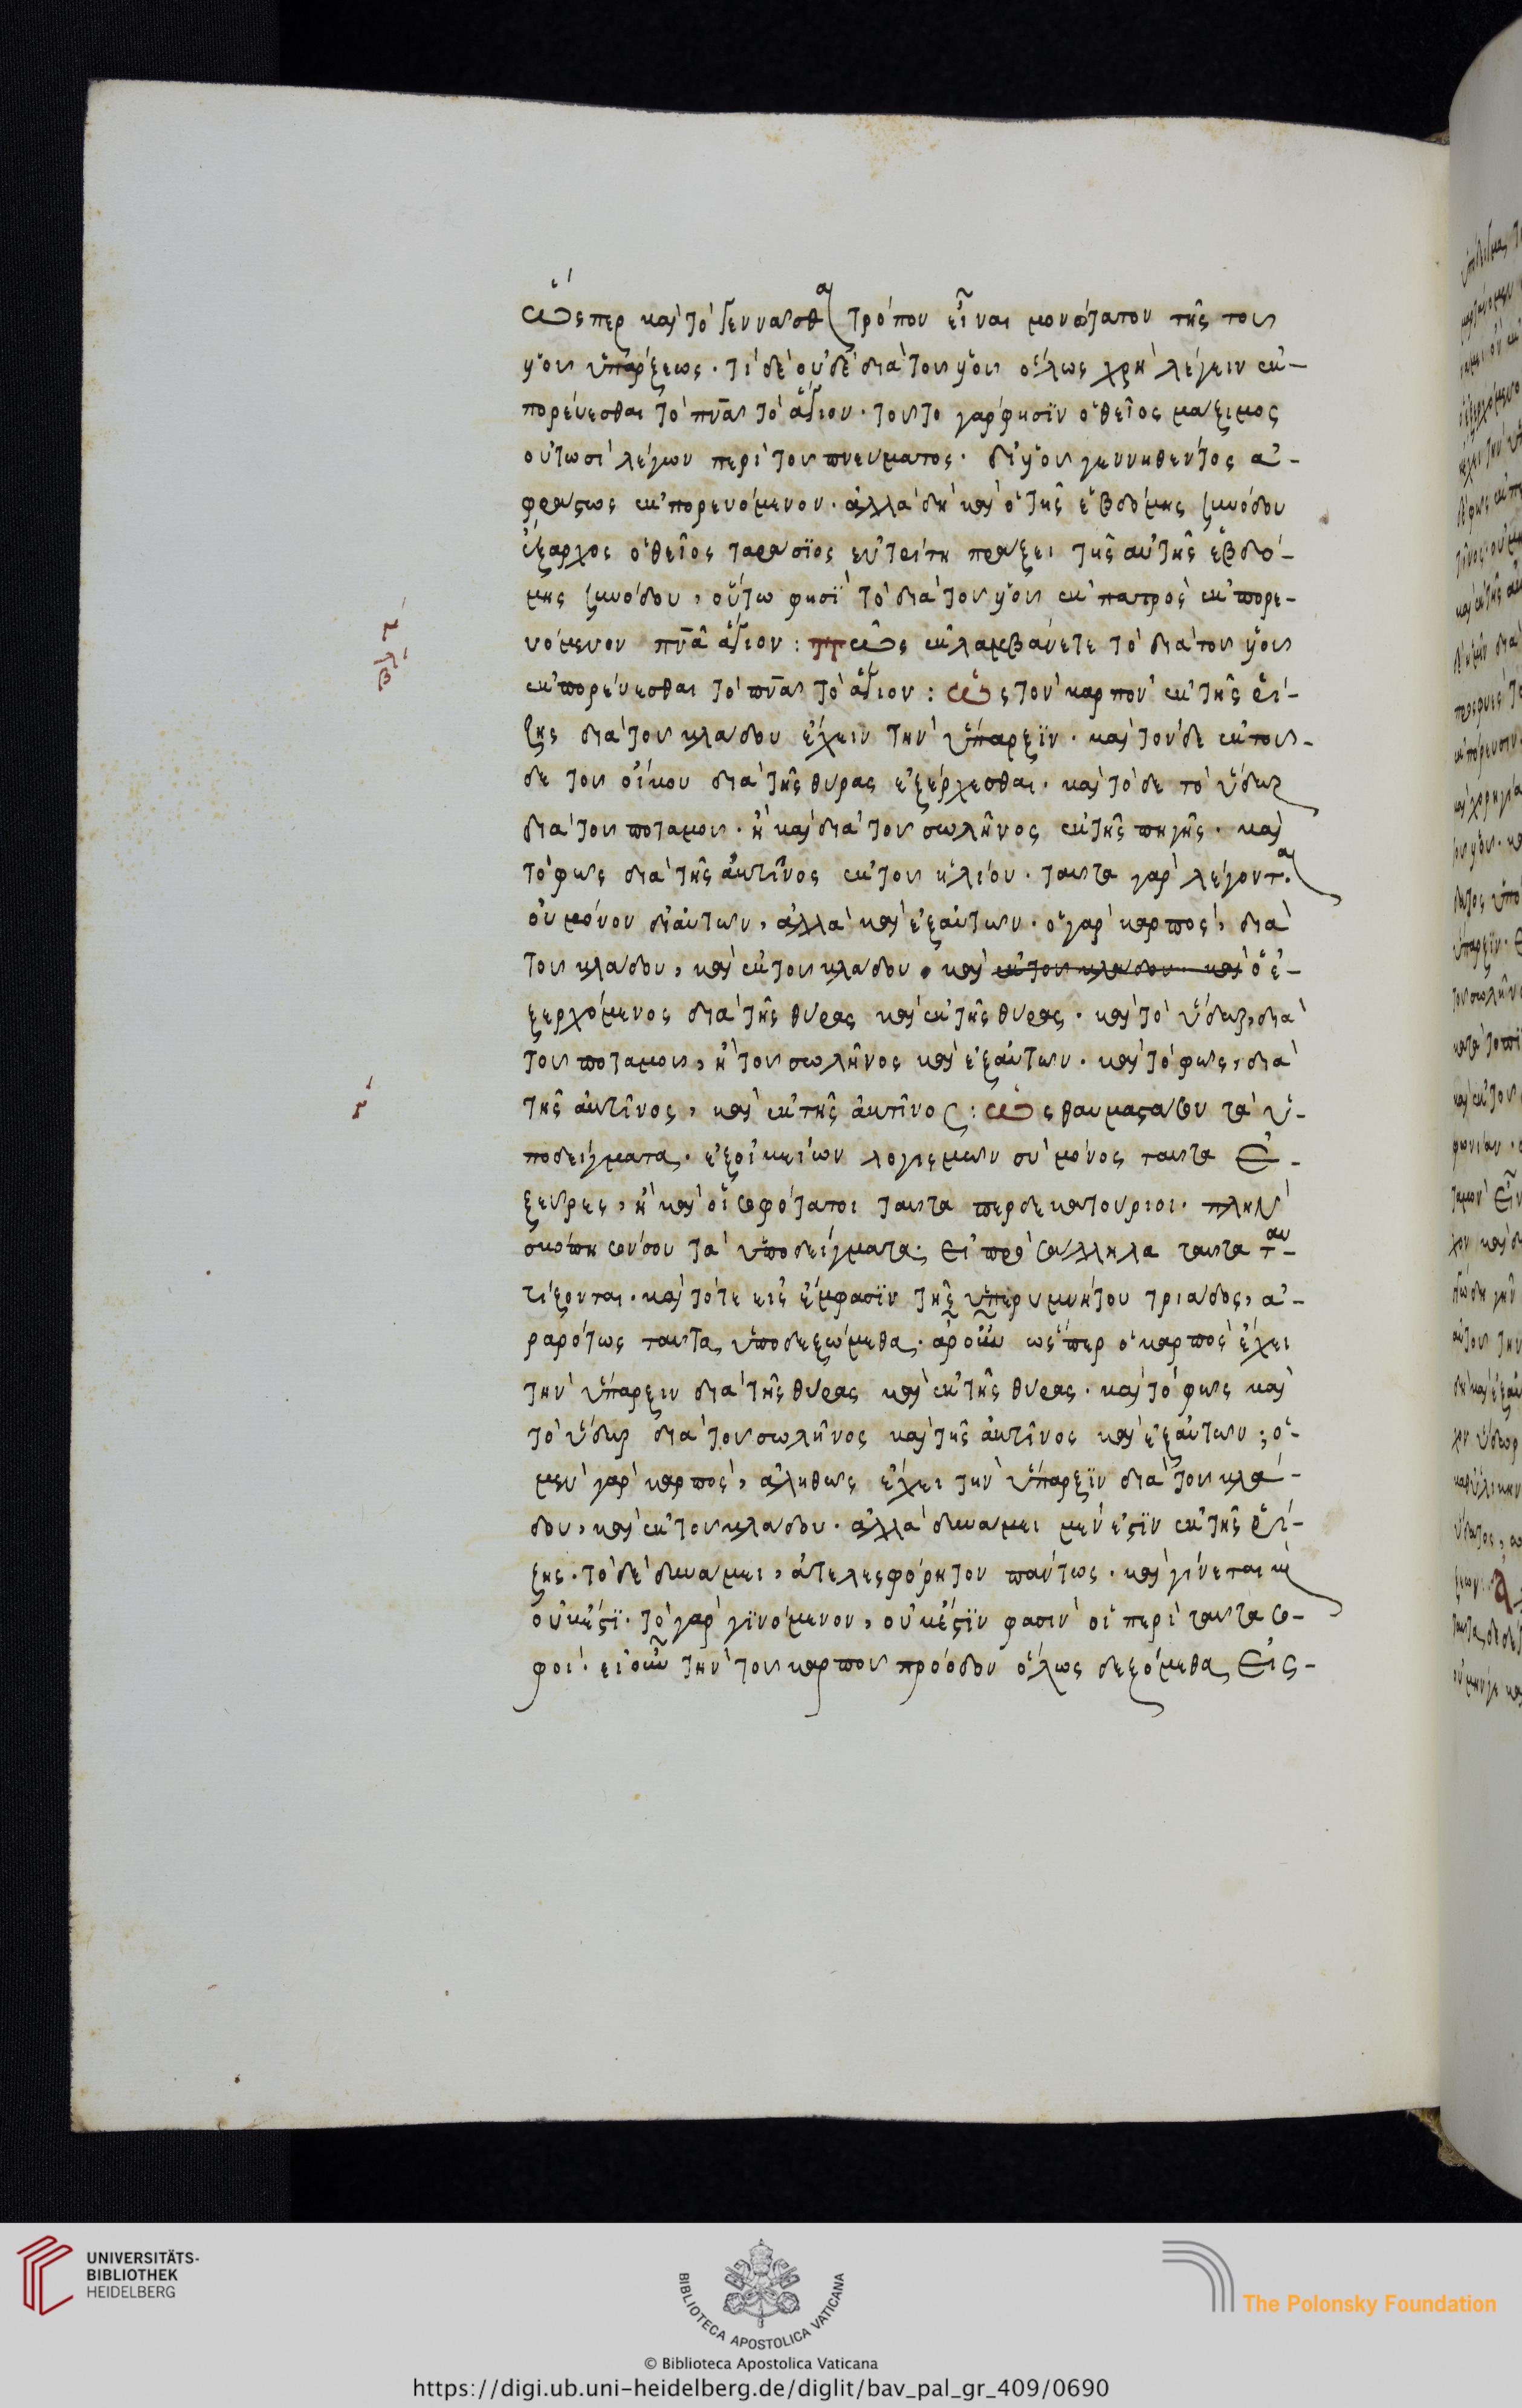 ὥσπερ καὶ τὸ γεννᾶσθαι τρόπον εἶναι μονώτατον τῆς τοῦ
υἱοῦ ὑπάρξεως. τί δὲ οὐδὲ διὰ τοῦ υἱοῦ ὅλως χρὴ λέγειν ἐκ-
πορεύεσθαι τὸ πνᾶ τὸ ἅγιον. τοῦτο γάρ φησιν ὁ θεῖος μάξιμος
οὑτωσὶ λέγων περὶ τοῦ πνεύματος. δι' υἱοῦ γεννηθέντος ἀ-
φράστως ἐκπορευόμενον. ἀλλὰ δὴ καὶ ὁ τῆς ἑβδόμης συνόδου
ἔξαρχος ὁ θεῖος ταράσιος ἐν τρίτη πράξει τῆς αὐτῆς ἑβδό-
μης συνόδου, οὕτω φησὶ τὸ διὰ τοῦ υἱοῦ ἐκ πατρὸς ἐκπορε-
νόμενον πνᾶ ἅγιον: πῶς ἐκλαμβάνετε τὸ διὰ τοῦ υἱοῦ
ἐκπορεύεσθαι τὸ πνᾶ τὸ ἅγιον: ὡς τὸν καρπὸν ἐκ τῆς ῥί-
ζης διὰ τοῦ κλάδου ἔχειν τὴν ὕπαρξιν. καὶ τόνδε ἐκ τοῦ-
δε τοῦ οἴκου διὰ τῆς θύρας ἐξέρχεσθαι. καὶ τόδε τὸ ὕδωρ
διὰ τοῦ ποταμοῦ. ἢ καὶ διὰ τοῦ σωλῆνος ἐκ τῆς πηγῆς. καὶ
τὸ φῶς διὰ τῆς ἀκτῖνος ἐκ τοῦ ἡλίου. ταῦτα γὰρ λέγονται
οὐ μόνον δι' αὐτῶν, ἀλλὰ καὶ ἐξ αὐτῶν. ὁ γὰρ καρπὸς, διὰ
τοῦ κλάδου, καὶ ἐκ τοῦ κλάδου. καὶ ἐκ τοῦ κλάδου. καὶ ὁ ἐ-
ξερχόμενος διὰ τῆς θύρας καὶ ἐκ τῆς θύρας. καὶ τὸ ὕδωρ, διὰ
τοῦ ποταμοῦ, ἢ τοῦ σωλῆνος καὶ ἐξ αὐτῶν. καὶ τὸ φῶς, διὰ
τῆς ἀκτῖνος, καὶ ἐκ τῆς ἀκτῖνος: ὡς θαυμαστά σου τὰ ὑ-
ποδείγματα. ἐξ οἰκείων λογισμῶν σὺ μόνος ταῦτα ἐ-
ξεῦρες, ἢ καὶ οἱ σοφώτατοι ταῦτα περδεκατούριοι. πλὴν
σκόπη σου τὰ ὑποδείγματα. εἰ ταῦτα ταυ-
τίζονται. καὶ τότε εἰς ἔμφασιν τῆς ὑπερυμνήτου τριάδος, ἀ-
ραρότως ταῦτα ὑποδεξώμεθα. ἆρ' οὖν ὥσπερ ὁ καρπὸς ἔχει
τὴν ὕπαρξιν διὰ τῆς θύρας καὶ ἐκ τῆς θύρας. καὶ τὸ φῶς καὶ
τὸ ὕδωρ διὰ τοῦ σωλῆνος καὶ τῆς ἀκτῖνος καὶ ἐξ αὐτῶν; ὁ
μὲν γὰρ καρπὸς, ἀληθῶς ἔχει τὴν ὕπαρξιν διὰ τοῦ κλά-
δου, καὶ ἐκ τοῦ κλάδου. ἀλλὰ δυνάμει μέν ἐστιν ἐκ τῆς ῥί-
ζης. τὸ δὲ δυνάμει, ἀτελεσφόρητον πάντως. καὶ γίνεται κ
οὐκ ἔστι. τὸ γὰρ γινόμενον, οὐκ ἔστιν φασὶν οἱ περὶ ταῦτα σο-
φοί. εἰ οὖν τὴν τοῦ καρποῦ πρόοδον ὅλως δεξόμεθα εἰς-
UNIVERSITÄTS-
BIBLIOTHEK
HEIDELBERG
BIBLIOTECA APOSTOLICA VATICANA
The Polonsky Foundation
© Biblioteca Apostolica Vaticana
https://digi.ub.uni-heidelberg.de/diglit/bav_pal_gr_409/0690